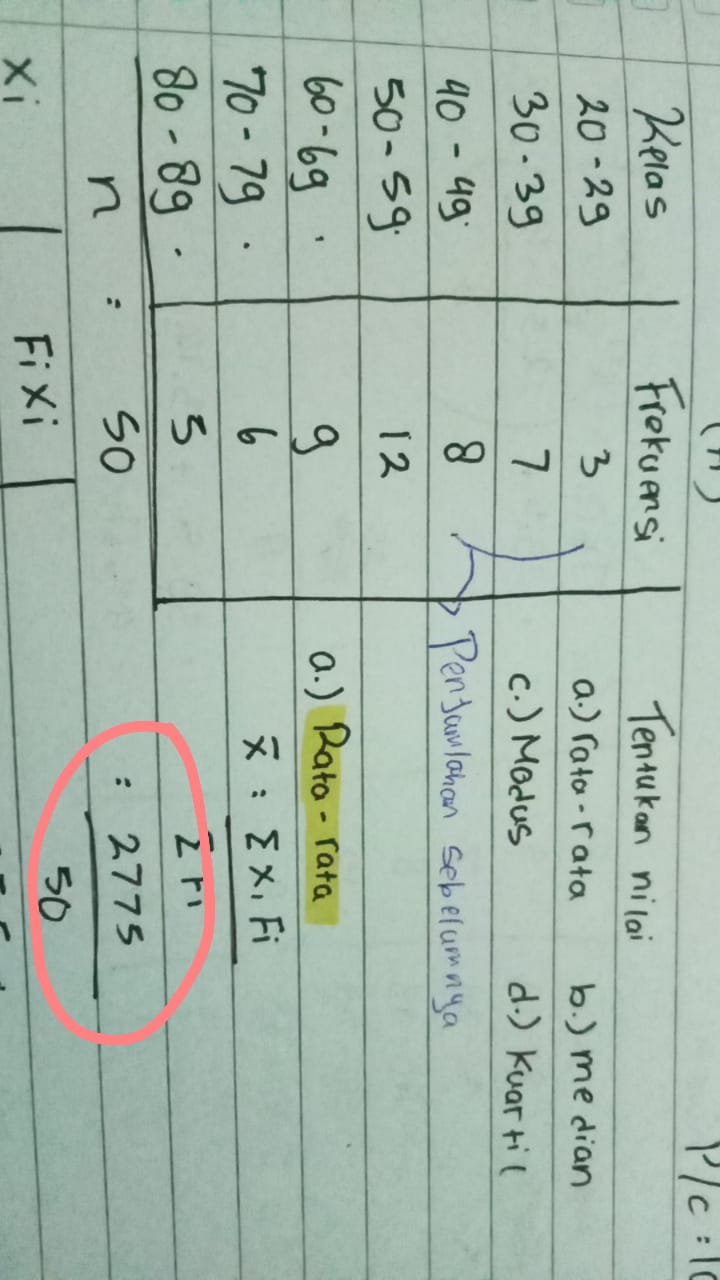 P/c = 10
Kelas Frekuensi Tentukan nilai
20-29 3 a.) rata-rata b.) median
30-39 7 c.) Modus d.) Kuartil
40-49 8 Penjumlahan sebelumnya
50-59 12
60-69 9 a.) Rata-rata
70-79 6 x̄ = Σ xi Fi
80-89 5 Σ Fi
n = 50 = 2775
50
xi Fi xi